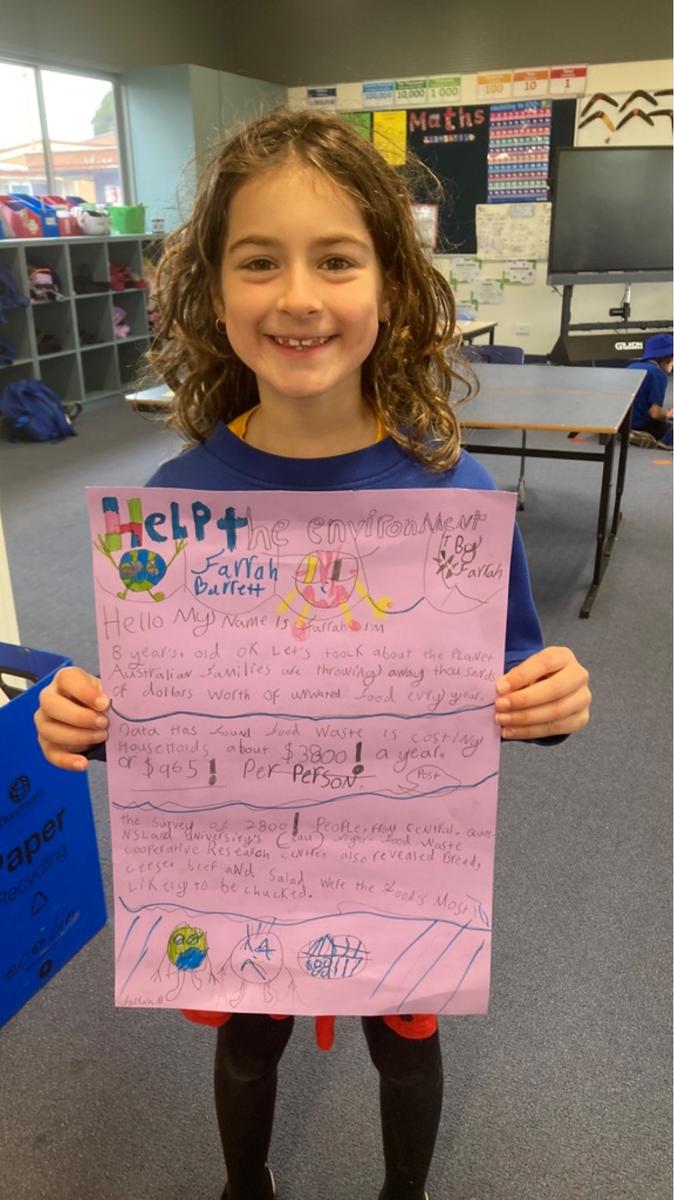 1,000,000
100,000
10,000
1 000
100
10
1
Maths
Help the environment
By
Farrah
Farrah
Barrett
Hello My Name Is Farrah I'm
8 years. old ok Let's toolk about the Planet
Australian families are throwing away thousands
of dollars worth of unwated food evry year.
Data has found food Waste is costing
Households about $3800! a year.
or $965! Per Person.
Post
the survey of 2800! People, from central. quee-
NSLand university's fight food waste
cooperative Research center also revealed Bread,
beef and salad were the food's Most
Likely to be chucked.
Farrah.B
Paper
Recycling
ecobin